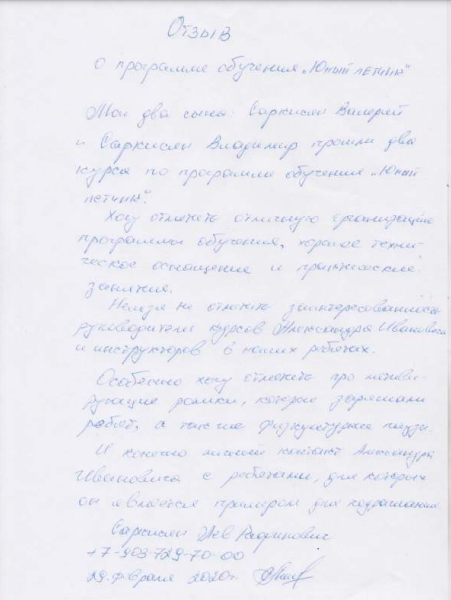 Отзыв
о программе обучения „Юный летчик"
Мои два сына: Саркисян Валерий
и Саркисян Владимир прошли два
курса по программе обучения „Юный
летчик".
Хочу отметить отличную организацию
программы обучения, хорошее техни-
ческое оснащение и практические
занятия.
Нельзя не отметить заинтересованность
руководителя курсов Александра Ивановича
и инструкторов в наших ребятах.
Особенно хочу отметить про мотиви-
рующие ролики, которые заряжали
ребят, а также физкультурные паузы.
И конечно личный контакт Александра
Ивановича с ребятами, для которых
он является примером для подражания.
Саркисян
+7-903-729-70-00
29 февраля 2020г.